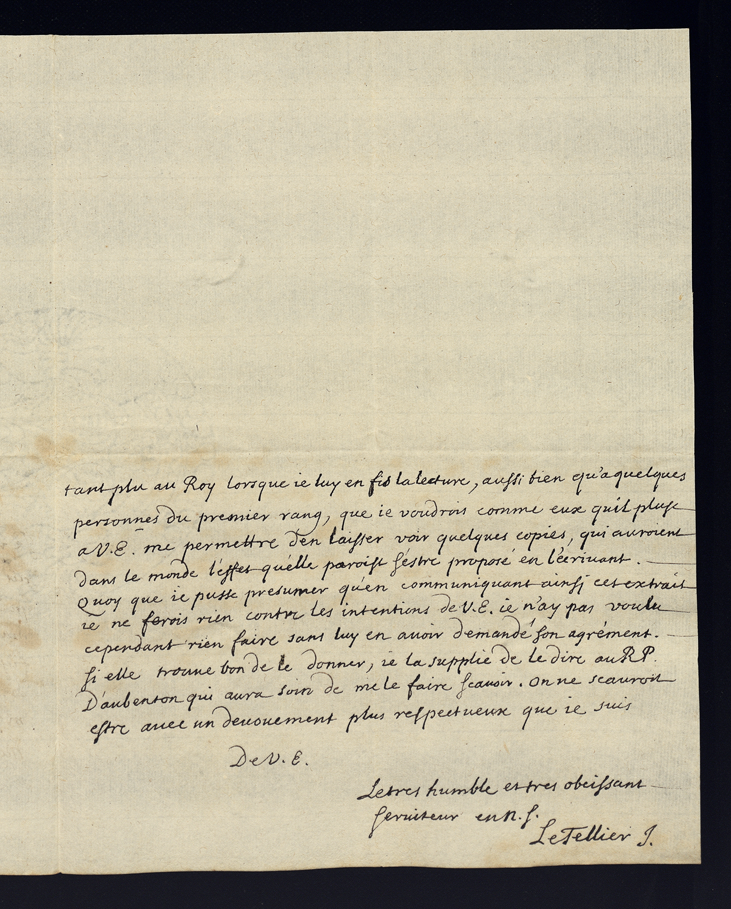 tant plu au Roy lorsque ie luy en fis la lecture, aussi bien qu'a quelques
personnes du premier rang, que ie voudrois comme eux qu'il plust
a V.E. me permettre d'en laisser voir quelques copies, qui auroient
dans le monde l'effet qu'elle paroist s'estre proposé en l'écrivant.
Quoy que ie pusse presumer qu'en communiquant ainsi cet extrait
ie ne ferois rien contre les intentions de V.E. ie n'ay pas voulu
cependant rien faire sans luy en avoir demandé son agrément.
si elle trouue bon de le donner, ie la supplie de le dire au R.P.
D'aubenton qui aura soin de me le faire scauoir. on ne scauroit
estre auec un deuouement plus respectueux que ie suis
De V.E.
Le tres humble et tres obeissant
seruiteur en N.S.
Le Tellier J.